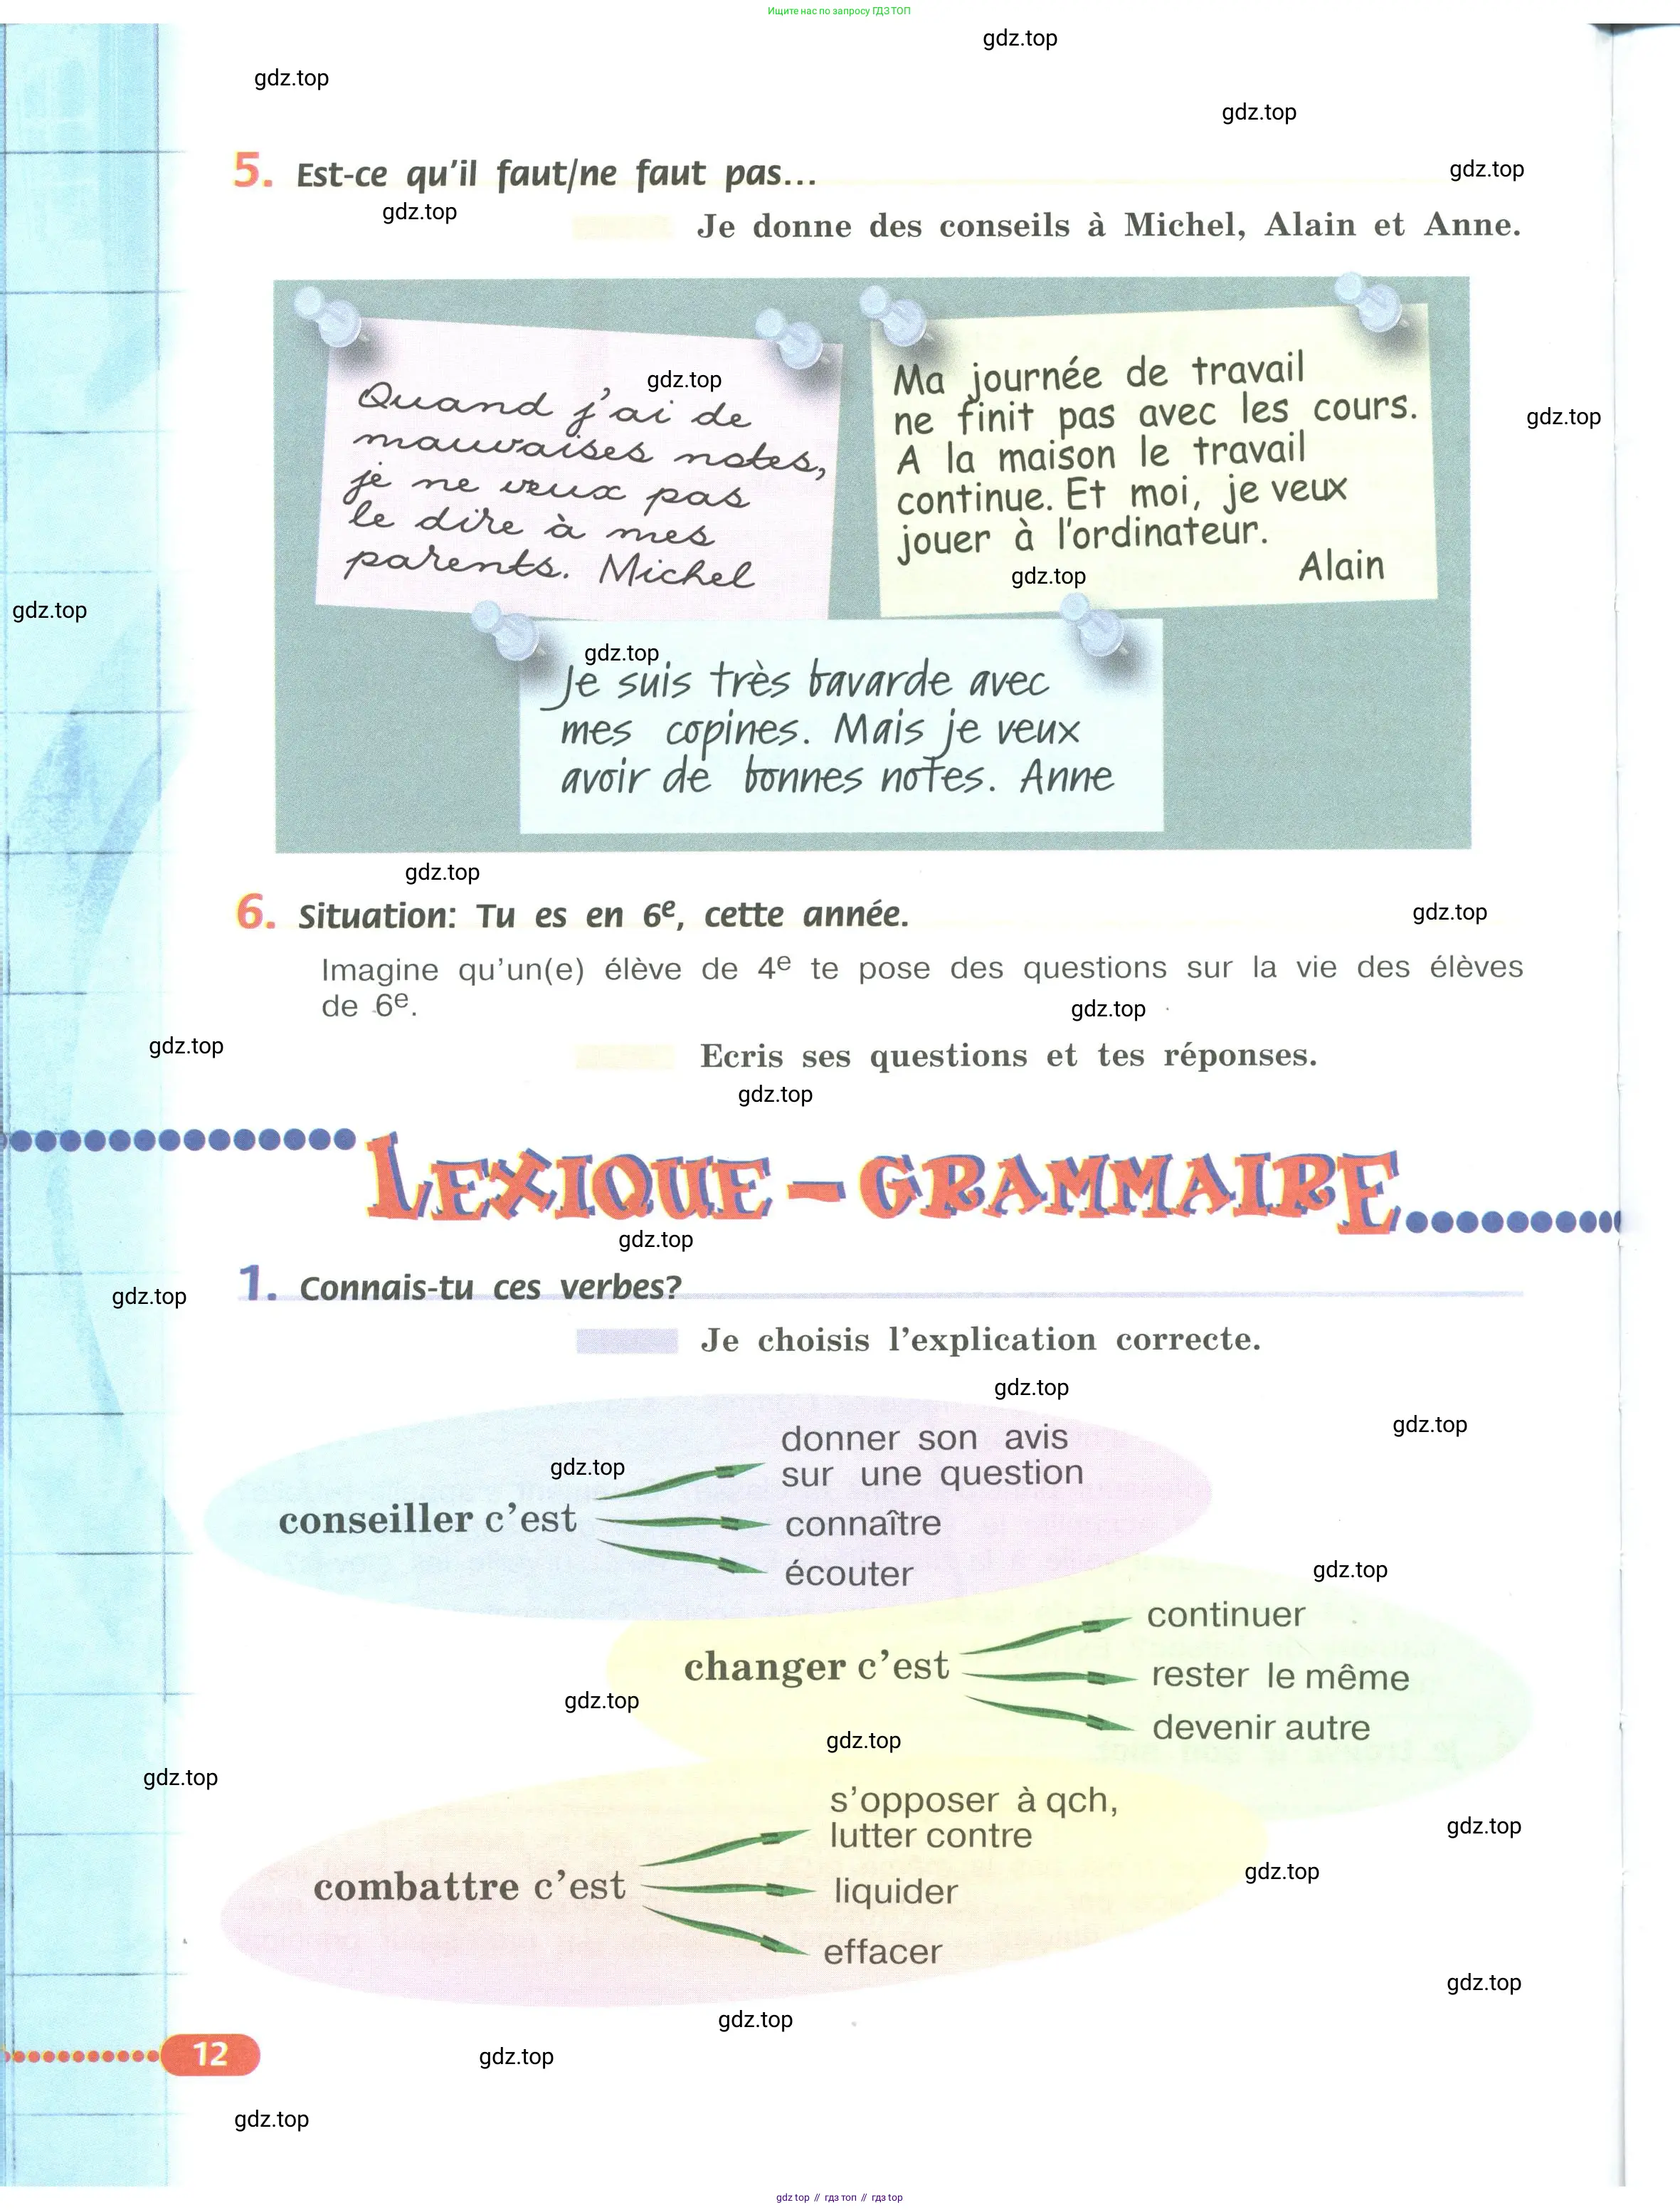 Ищите нас по запросу ГДЗ ТОП
gdz.top
gdz.top
gdz.top
5. Est-ce qu'il faut/ne faut pas...
gdz.top
gdz.top
Je donne des conseils à Michel, Alain et Anne.
Quand j'ai de
mauvaises notes,
je ne veux pas
le dire à mes
parents. Michel
gdz.top
Ma journée de travail
ne finit pas avec les cours.
A la maison le travail
continue. Et moi, je veux
jouer à l'ordinateur.
Alain
gdz.top
gdz.top
gdz.top
gdz.top
Je suis très bavarde avec
mes copines. Mais je veux
avoir de bonnes notes. Anne
gdz.top
6. Situation: Tu es en 6e, cette année.
gdz.top
Imagine qu'un(e) élève de 4e te pose des questions sur la vie des élèves
de 6e.
gdz.top
gdz.top
Ecris ses questions et tes réponses.
gdz.top
LEXIQUE – GRAMMAIRE
gdz.top
1. Connais-tu ces verbes?
gdz.top
Je choisis l'explication correcte.
gdz.top
gdz.top
donner son avis
sur une question
gdz.top
conseiller c'est
connaître
écouter
gdz.top
continuer
changer c'est
rester le même
gdz.top
devenir autre
gdz.top
gdz.top
s'opposer à qch,
lutter contre
gdz.top
gdz.top
combattre c'est
liquider
effacer
gdz.top
gdz.top
12
gdz.top
gdz.top
gdz top // гдз топ // гдз top